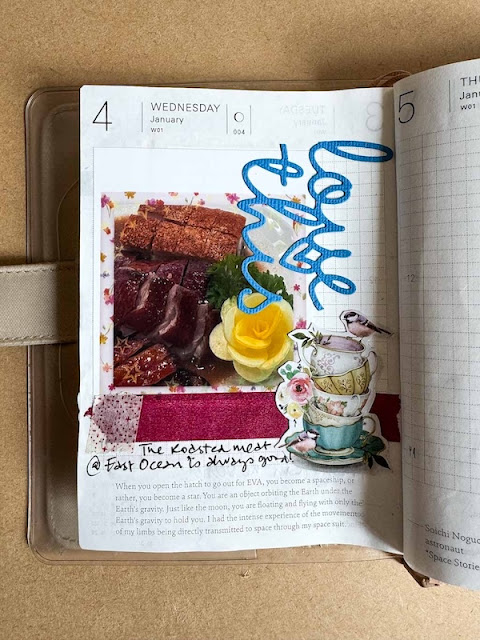 4
WEDNESDAY
January
W01
004
love
this
The Roasted meat
@ East Ocean is always good!
When you open the hatch to go out for EVA, you become a spaceship, or
rather, you become a star. You are an object orbiting the Earth under the
Earth's gravity. Just like the moon, you are floating and flying with only the
Earth's gravity to hold you. I had the intense experience of the movements
of my limbs being directly transmitted to space through my space suit.
5
THU
Janu
W01
12
Soichi Noguc
astronaut
*Space Storie